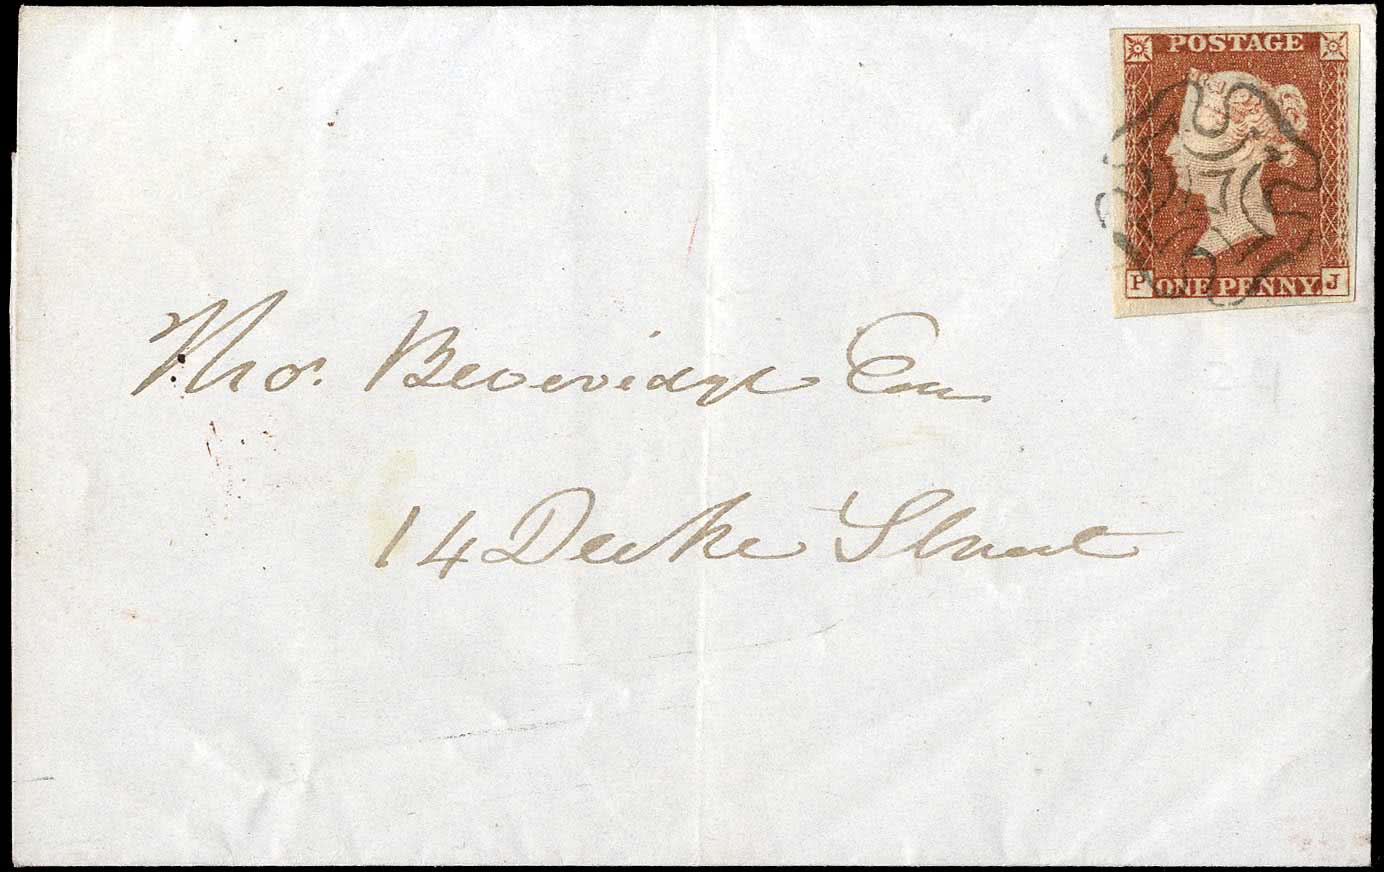 POSTAGE
7
P ONE PENNY J
Thos. Beveridge Esq
14 Duke Street